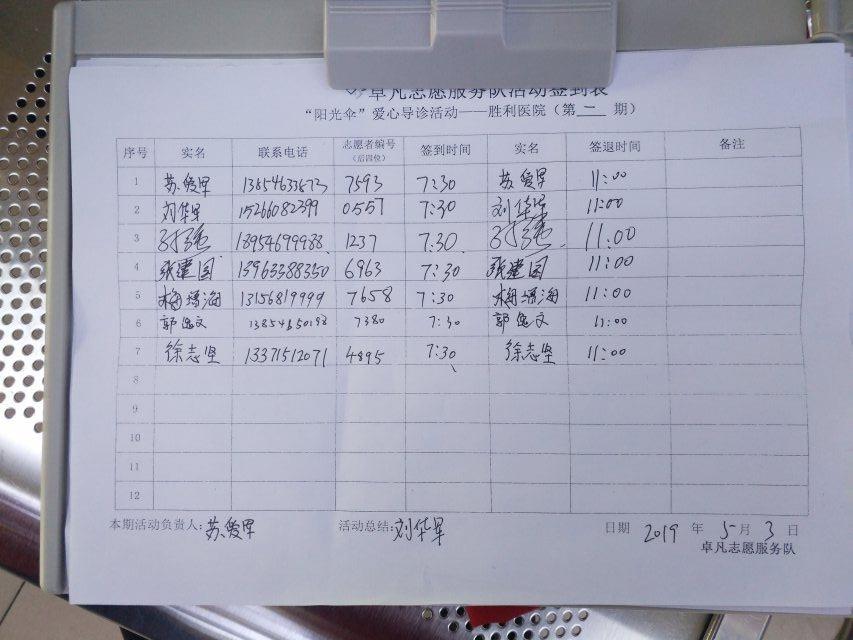 卓凡志愿服务队活动签到表
“阳光伞”爱心导诊活动——胜利医院(第 二 期)
序号 实名 联系电话 志愿者编号(后四位) 签到时间 实名 签退时间 备注
1 苏爱军 13854633873 7593 7:30 苏爱军 11:00
2 刘华军 15266082399 0557 7:30 刘华军 11:00
3 18954699988 1237 7:30 11:00
4 张建国 13963388350 6963 7:30 张建国 11:00
5 13156819999 7658 7:30 11:00
6 13854650198 7380 7:30 11:00
7 徐志坚 13371512071 4895 7:30 徐志坚 11:00
8
9
10
11
12
本期活动负责人:苏爱军 活动总结:刘华军 日期 2019 年 5 月 3 日
卓凡志愿服务队